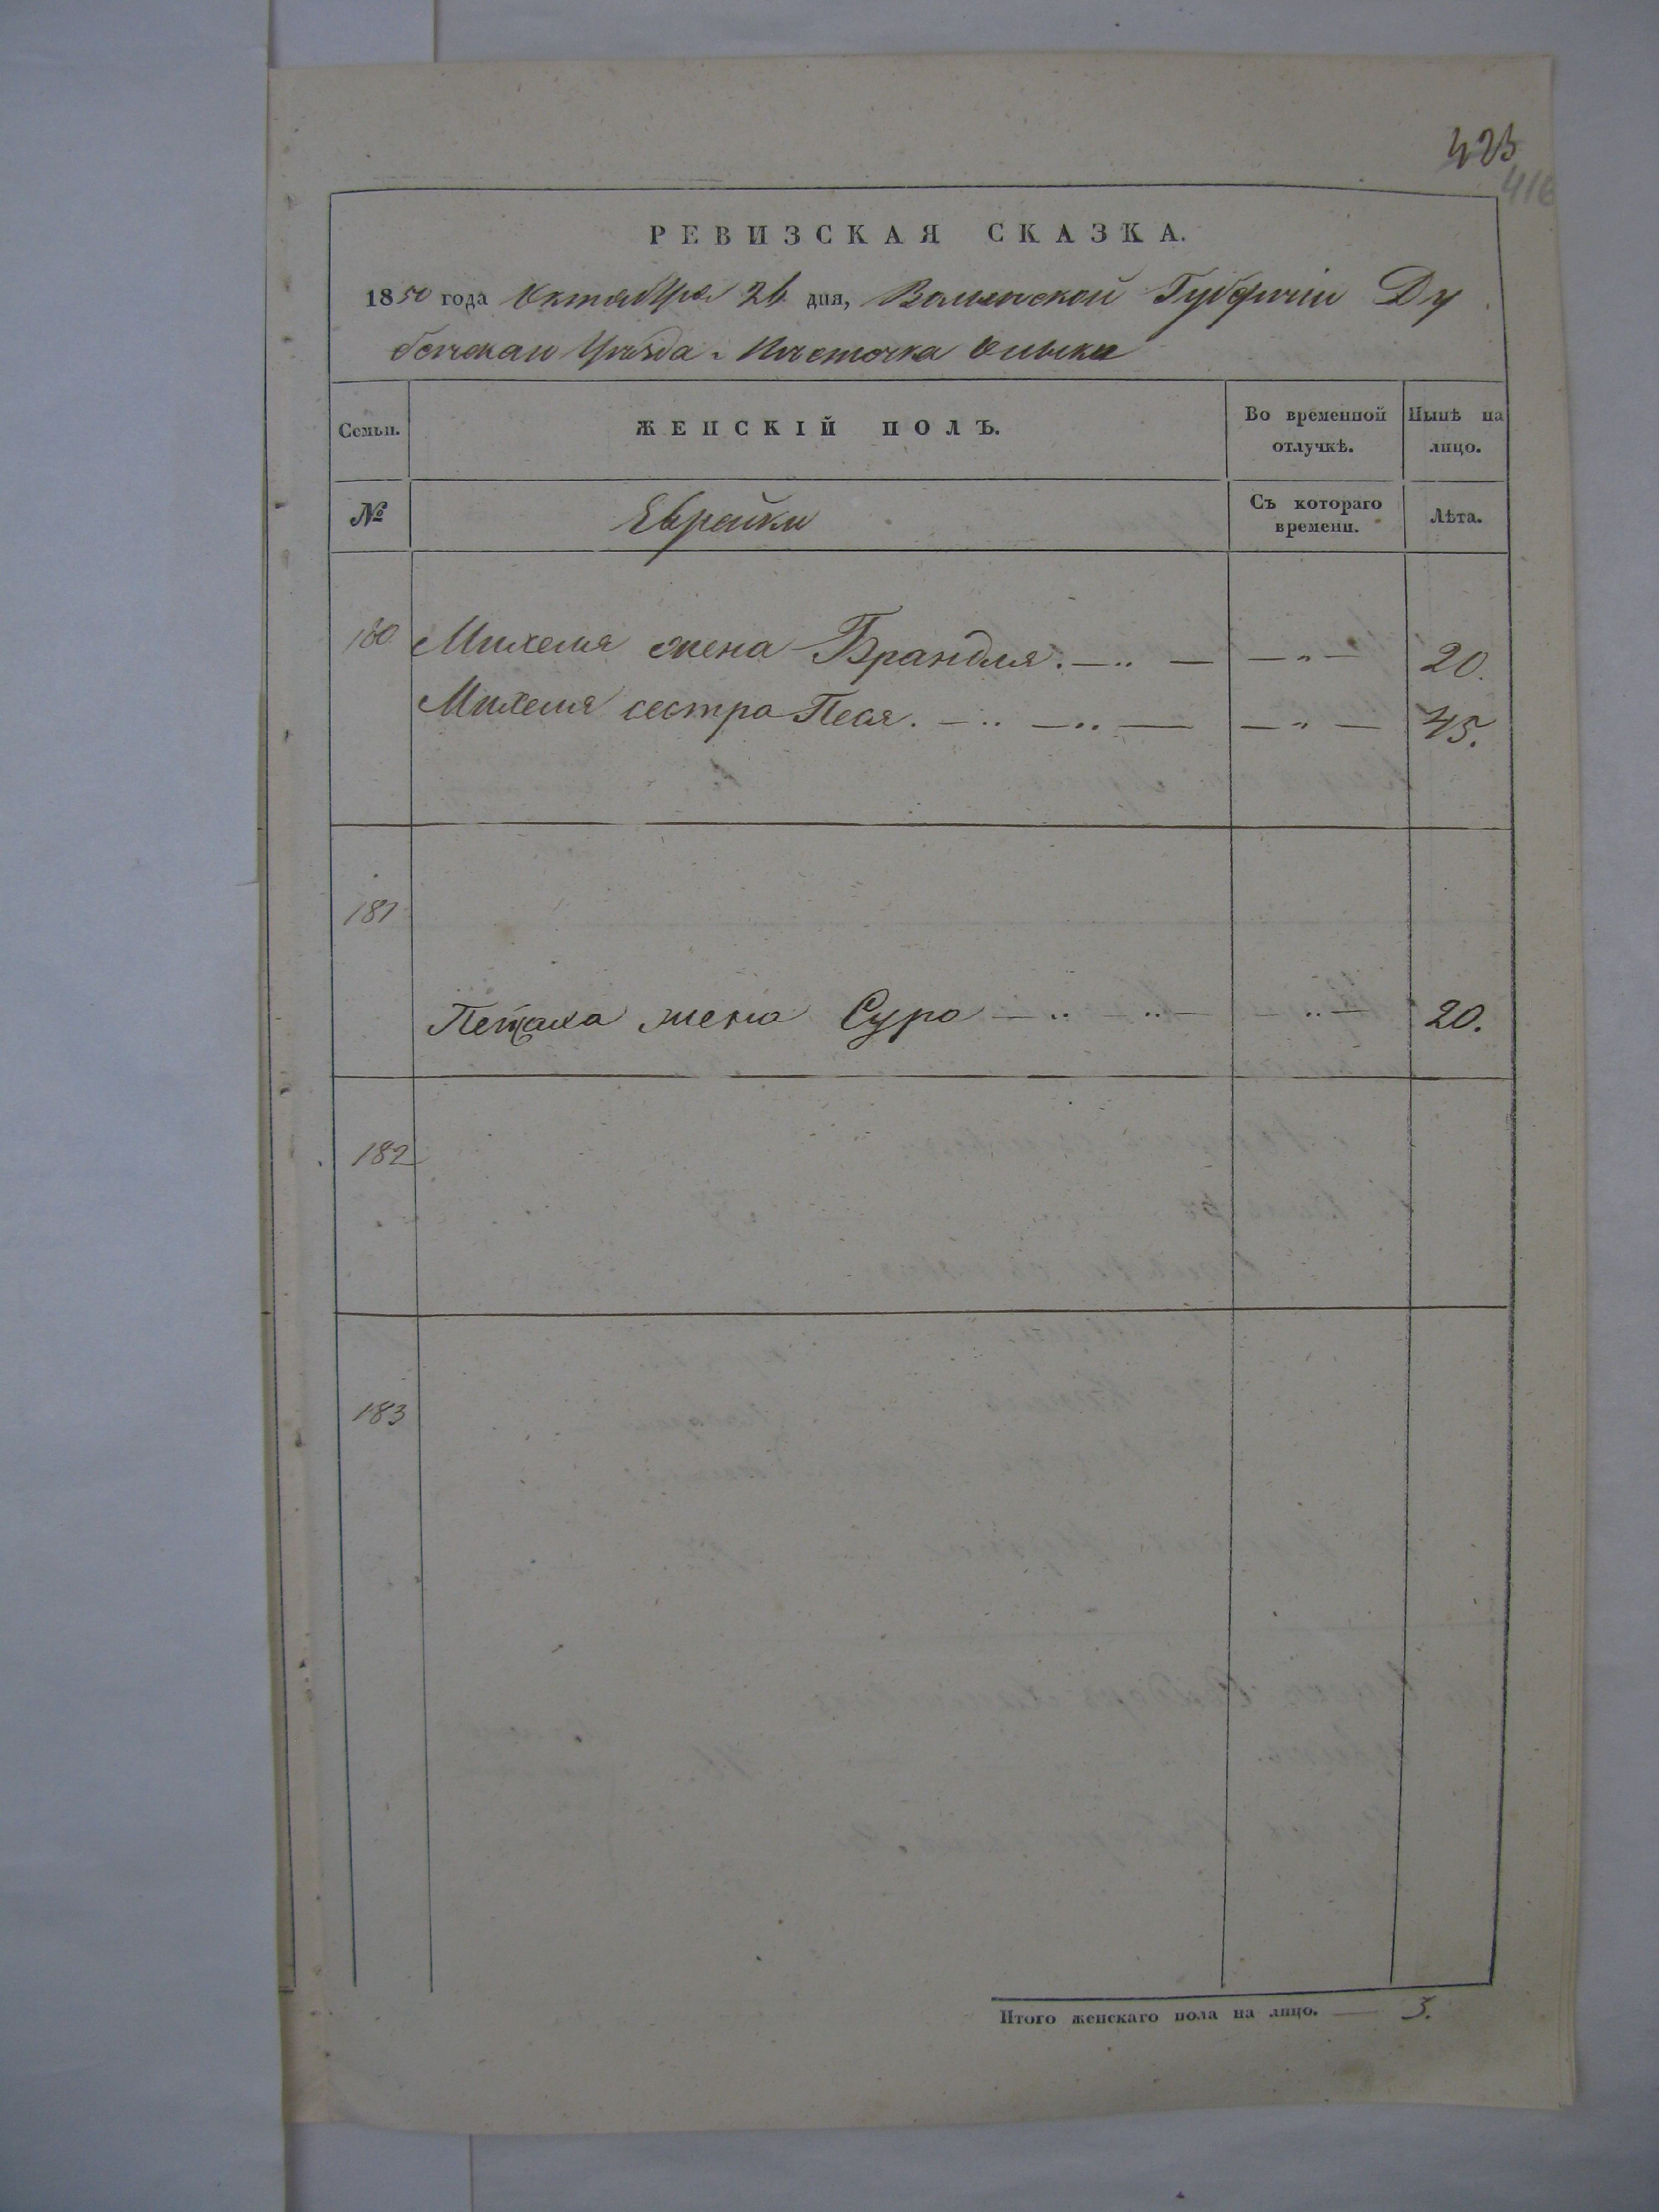 423
416
РЕВИЗСКАЯ СКАЗКА.
1850 года Октября 26 дня, Волынской Губерніи Ду
бенскаго Уѣзда: Мѣстечка Олыки
Семьи.
ЖЕНСКІЙ ПОЛЪ.
Во временной отлучкѣ.
Нынѣ на лицо.
№
Еврейки
Съ котораго времени.
Лѣта.
180 Михеля жена Брандля. — „ — — „ — 20.
Михеля сестра Песя. — „ — „ — — „ — 45.
181
Петаха жена Сура — „ — „ — — „ — 20.
182
183
Итого женскаго пола на лицо. — 3.